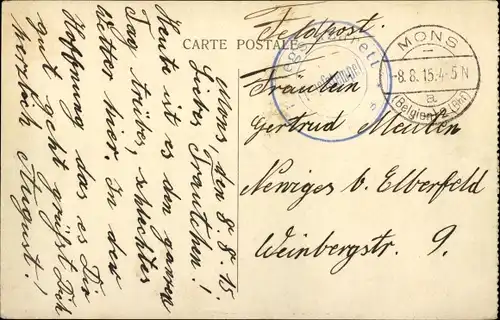 CARTE POSTALE
Feldpost.
MONS
-8.8.15.4-5N
a
(Belgien)
Fräulein
Gertrud Meulen
Neviges b. Elberfeld
Weinbergstr. 9.
Mons, den 8.8.15.
Liebes Trautchen!
Heute ist es den ganzen
Tag trübes, schlechtes
Wetter hier. In der
Hoffnung das es Dir
gut geht grüßt Dich
herzlich August!